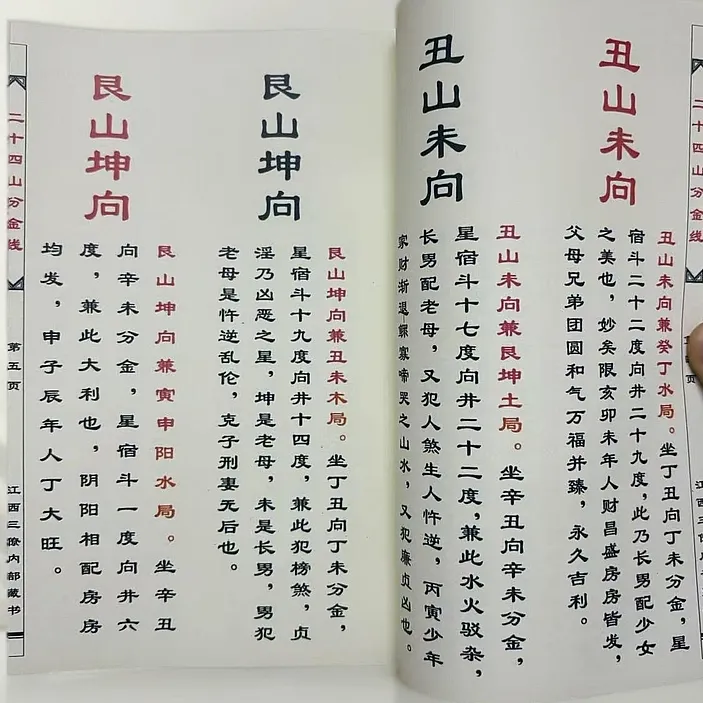 二十四山分金线
页
江西三
丑山未向
丑山未向兼癸丁水局。坐丁丑向丁未分金,星
宿斗二十二度向井二十九度,此乃长男配少女
之美也,妙矣限亥卯未年人财昌盛房房皆发,
父母兄弟团圆和气万福并臻,永久吉利。
丑山未向
丑山未向兼艮坤土局。坐辛丑向辛未分金,
星宿斗十七度向井二十二度,兼此水火驳杂,
长男配老母,又犯人煞生人忤逆,丙寅少年
家财渐退鳏寡啼哭之山水,又犯廉贞凶也。
艮山坤向
艮山坤向兼丑未木局。坐丁丑向丁未分金,
星宿斗十九度向井十四度,兼此犯榜煞,贞
淫乃凶恶之星,坤是老母,未是长男,男犯
老母是忤逆乱伦,克子刑妻无后也。
艮山坤向
艮山坤向兼寅申阳水局。坐辛丑
向辛未分金,星宿斗一度向井六
度,兼此大利也,阴阳相配房房
均发,申子辰年人丁大旺。
二十四山分金线
第五页
江西三僚内部藏书